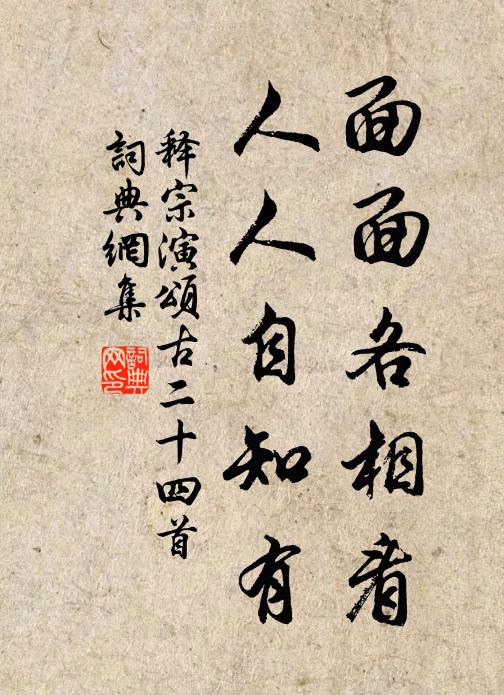 面面各相看
人人自知有
释宗演頌古二十四首
詞典網集
詞典
网印